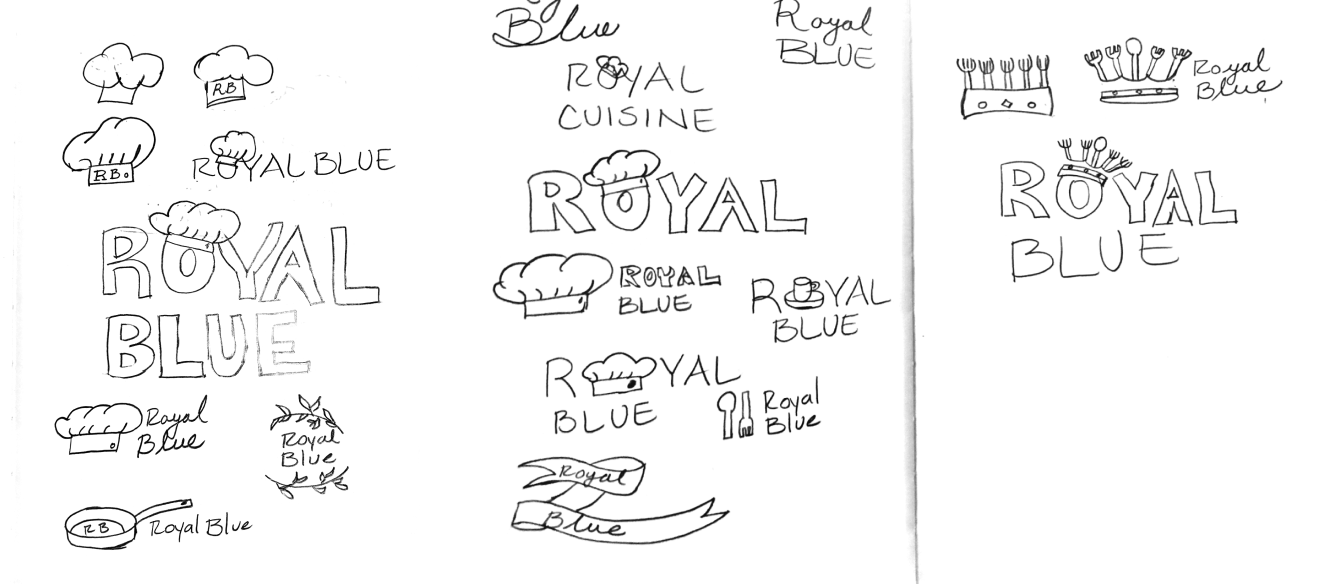 RB
RB.
ROYAL BLUE
ROYAL
BLUE
Royal
Blue
Royal
Blue
RB
Royal Blue
Blue
Royal
BLUE
ROYAL
CUISINE
ROYAL
ROYAL
BLUE
ROYAL
BLUE
ROYAL
BLUE
Royal
Blue
Royal
Blue
Royal
Blue
ROYAL
BLUE